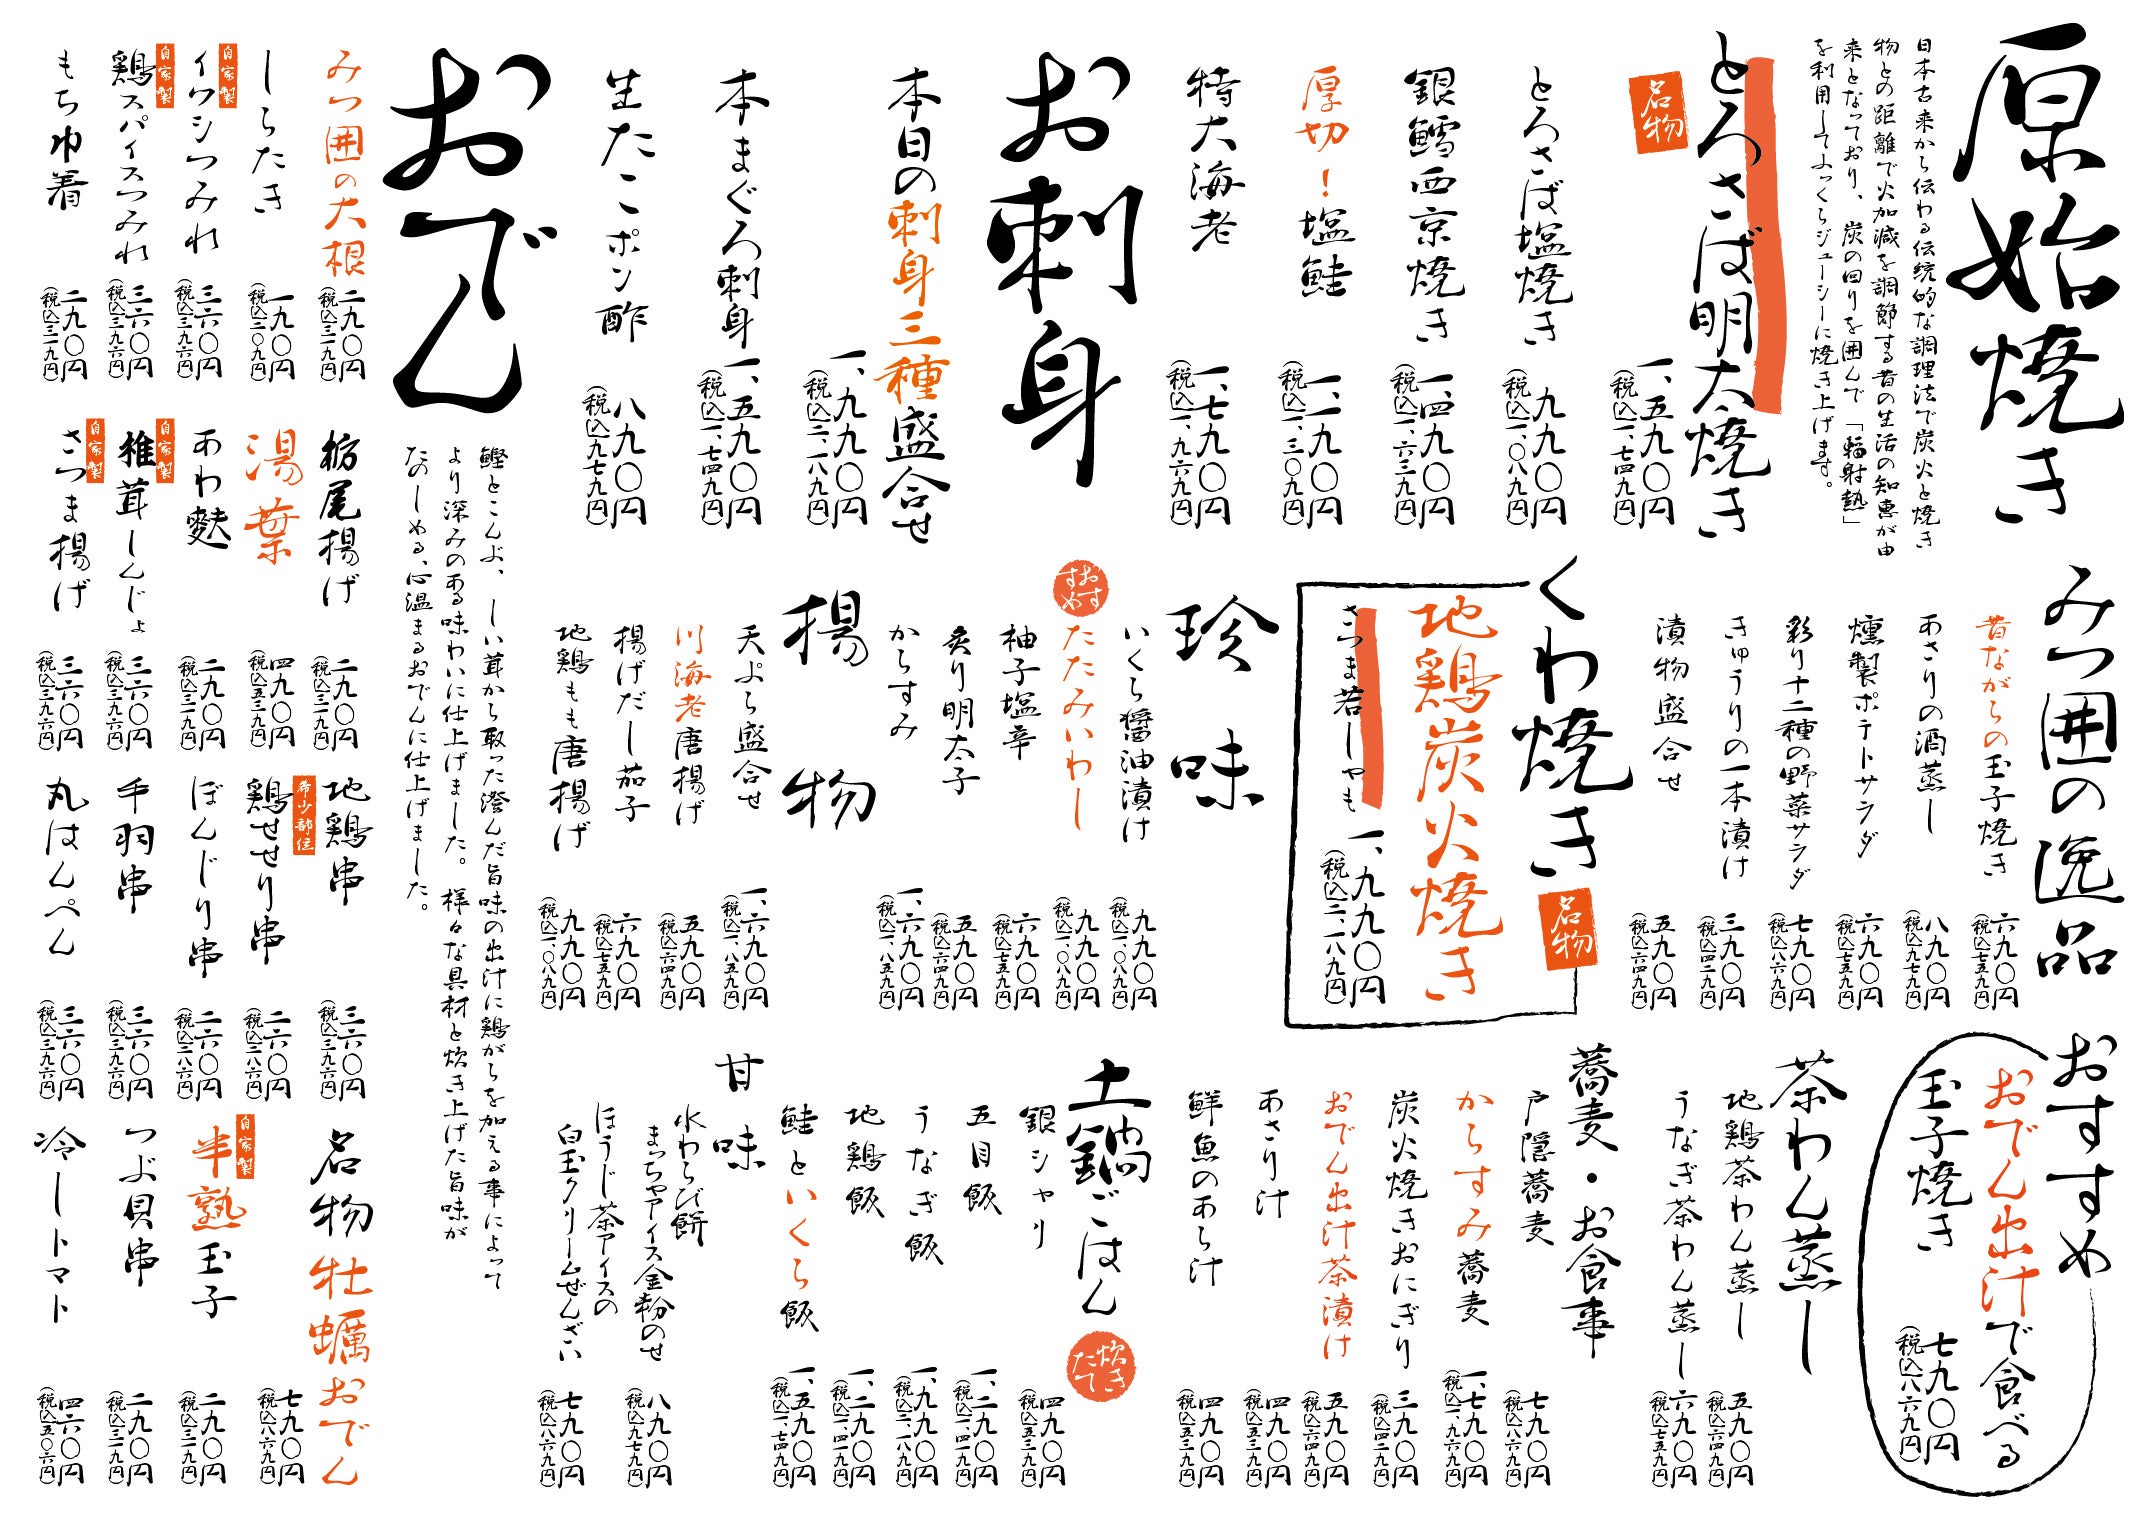 原始焼き
日本古来から伝わる伝統的な調理法で炭火と焼き
物との距離で火加減を調節する昔の生活の知恵が由
来となっており、炭の回りを囲んで「輻射熱」
を利用してふっくらジューシーに焼き上げます。
名物
とろさば明太焼き
一、五九〇円
(税込一、七四九円)
とろさば塩焼き
九九〇円
(税込一、〇八九円)
銀鱈西京焼き
一、四九〇円
(税込一、六三九円)
厚切!塩鮭
一、一九〇円
(税込一、三〇九円)
特大海老
一、七九〇円
(税込一、九六九円)
お刺身
本日の刺身三種盛合せ
一、九九〇円
(税込二、一八九円)
本まぐろ刺身
一、五九〇円
(税込一、七四九円)
生たこポン酢
八九〇円
(税込九七九円)
みつ囲の逸品
昔ながらの玉子焼き
六九〇円
(税込七五九円)
あさりの酒蒸し
八九〇円
(税込九七九円)
燻製ポテトサラダ
六九〇円
(税込七五九円)
彩り十二種の野菜サラダ
七九〇円
(税込八六九円)
きゅうりの一本漬け
三九〇円
(税込四二九円)
漬物盛合せ
五九〇円
(税込六四九円)
くわ焼き
名物
地鶏炭火焼き
さつま若しゃも
一、九九〇円
(税込二、一八九円)
珍味
いくら醤油漬け
九九〇円
(税込一、〇八九円)
おすすめ
たたみいわし
九九〇円
(税込一、〇八九円)
柚子塩辛
六九〇円
(税込七五九円)
炙り明太子
五九〇円
(税込六四九円)
からすみ
一、六九〇円
(税込一、八五九円)
揚物
天ぷら盛合せ
一、六九〇円
(税込一、八五九円)
川海老唐揚げ
五九〇円
(税込六四九円)
揚げだし茄子
六九〇円
(税込七五九円)
地鶏もも唐揚げ
九九〇円
(税込一、〇八九円)
おすすめ
おでん出汁で食べる
玉子焼き
七九〇円
(税込八六九円)
茶わん蒸し
地鶏茶わん蒸し
五九〇円
(税込六四九円)
うなぎ茶わん蒸し
六九〇円
(税込七五九円)
蕎麦・お食事
戸隠蕎麦
七九〇円
(税込八六九円)
からすみ蕎麦
一、七九〇円
(税込一、九六九円)
炭火焼きおにぎり
三九〇円
(税込四二九円)
おでん出汁茶漬け
五九〇円
(税込六四九円)
あさり汁
四九〇円
(税込五三九円)
鮮魚のあら汁
四九〇円
(税込五三九円)
土鍋ごはん
炊きたて
銀シャリ
四九〇円
(税込五三九円)
五目飯
一、二九〇円
(税込一、四一九円)
うなぎ飯
一、九九〇円
(税込二、一八九円)
地鶏飯
一、二九〇円
(税込一、四一九円)
鮭といくら飯
一、五九〇円
(税込一、七四九円)
甘味
水わらび餅
まっちゃアイス金粉のせ
八九〇円
(税込九七九円)
ほうじ茶アイスの
白玉クリームぜんざい
七九〇円
(税込八六九円)
おでん
鰹とこんぶ、しい茸から取った澄んだ旨味の出汁に鶏がらを加える事によって
より深みのある味わいに仕上げました。様々な具材と炊き上げた旨味が
たのしめる、心温まるおでんに仕上げました。
みつ囲の大根
二九〇円
(税込三一九円)
しらたき
一九〇円
(税込二〇九円)
自家製
イワシつみれ
三六〇円
(税込三九六円)
自家製
鶏スパイスつみれ
三六〇円
(税込三九六円)
もち巾着
二九〇円
(税込三一九円)
栃尾揚げ
二九〇円
(税込三一九円)
湯葉
四九〇円
(税込五三九円)
あわ麩
二九〇円
(税込三一九円)
自家製
椎茸しんじょ
三六〇円
(税込三九六円)
自家製
さつま揚げ
三六〇円
(税込三九六円)
地鶏串
三六〇円
(税込三九六円)
希少部位
鶏せせり串
二六〇円
(税込二八六円)
ぼんじり串
二六〇円
(税込二八六円)
手羽串
三六〇円
(税込三九六円)
丸はんぺん
三六〇円
(税込三九六円)
名物牡蠣おでん
七九〇円
(税込八六九円)
自家製
半熟玉子
二九〇円
(税込三一九円)
つぶ貝串
二九〇円
(税込三一九円)
冷しトマト
四六〇円
(税込五〇六円)